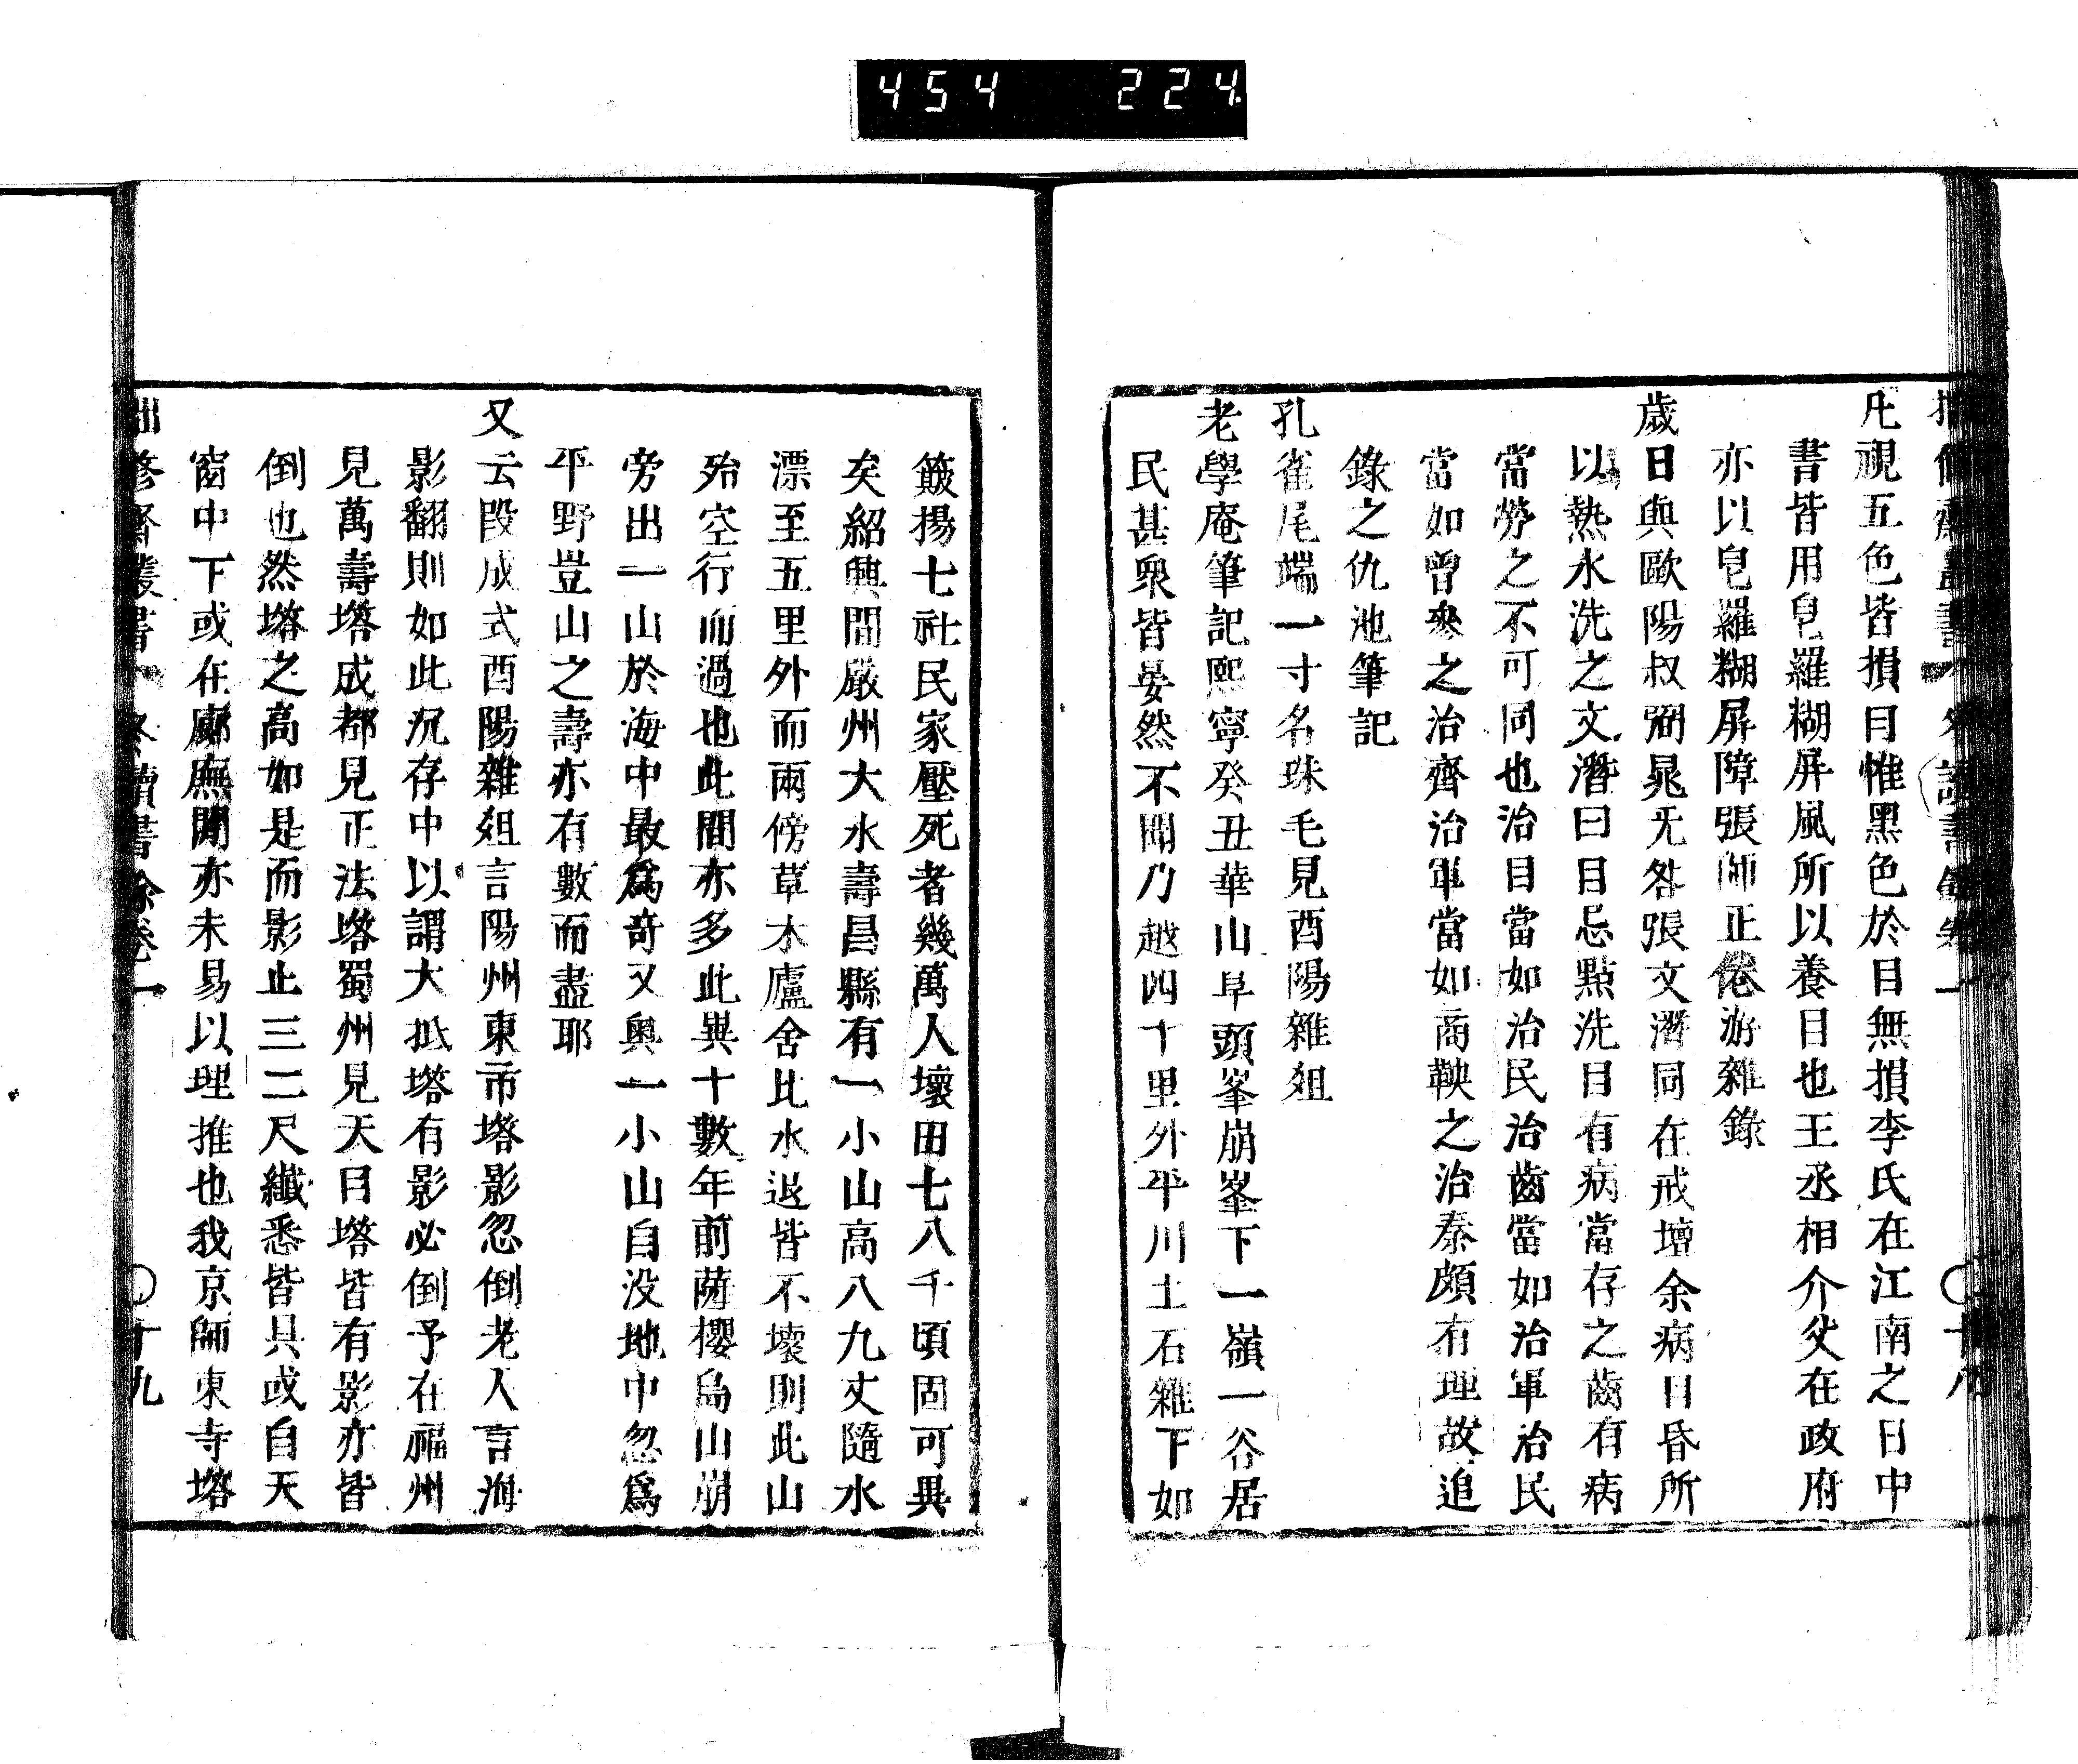 454 224
拙脩齋叢書 外讀書餘卷一 〇十八
凡視五色皆損目惟黑色於目無損李氏在江南之日中
書皆用皂羅糊屏風所以養目也王丞相介甫在政府
亦以皂羅糊屏障張師正倦游雜錄
歲日與歐陽叔弼晁无咎張文潛同在戒壇余病目昏所
以熱水洗之文潛曰目忌點洗目有病當存之齒有病
當勞之不可同也治目當如治民治齒當如治軍治民
當如曾參之治齊治軍當如商鞅之治秦頗有理故追
錄之仇池筆記
孔雀尾端一寸名珠毛見酉陽雜俎
老學庵筆記熙寧癸丑華山阜頭峯崩峯下一嶺一谷居
民甚眾皆晏然不聞乃越四十里外平川土石雜下如
簸揚七社民家壓死者幾萬人壞田七八千頃固可異
矣紹興間嚴州大水壽昌縣有一小山高八九丈隨水
漂至五里外而兩傍草木廬舍比水退皆不壞則此山
殆空行而過也此間亦多此異十數年前薩櫻島山崩
旁出一山於海中最爲奇又奧一小山自没地中忽爲
平野豈山之壽亦有數而盡耶
又云段成式酉陽雜俎言陽州東市塔影忽倒老人言海
影翻則如此沉存中以謂大抵塔有影必倒予在福州
見萬壽塔成都見正法塔蜀州見天目塔皆有影亦皆
倒也然塔之高如是而影止三二尺纖悉皆具或自天
窗中下或在廊廡間亦未易以理推也我京師東寺塔
拙脩齋叢書 外讀書餘卷一 〇十九